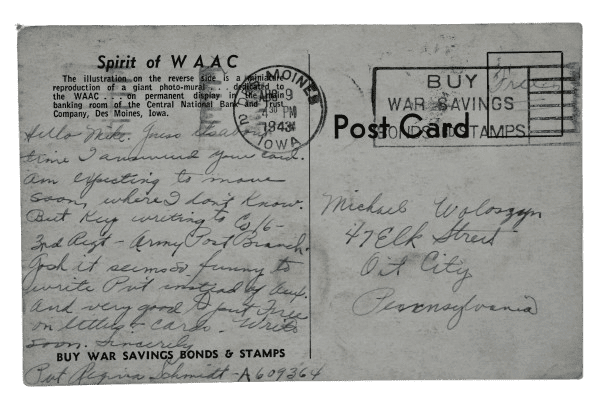 Spirit of WAAC
The illustration on the reverse side is a miniature
reproduction of a giant photo-mural . . . dedicated to
the WAAC . . . on permanent display in the main
banking room of the Central National Bank and Trust
Company, Des Moines, Iowa.
DES MOINES
9
4 30 PM
1943
2 IOWA
BUY
WAR SAVINGS
BONDS & STAMPS
Free
Post Card
Hello Mike. Guess it's about
time I answered your card.
Am expecting to move
soon, where I don't know.
But Keep writing to Co 16-
3rd Regt - Army Post Branch.
Gosh it seems so funny to
write Pvt instead of Aux.
And very good to put Free
on letters & cards. Write
soon. Sincerely
BUY WAR SAVINGS BONDS & STAMPS
Pvt Regina Schmidt - A609364
Michael Woloszyn
47 Elk Street
Oil City
Pennsylvania